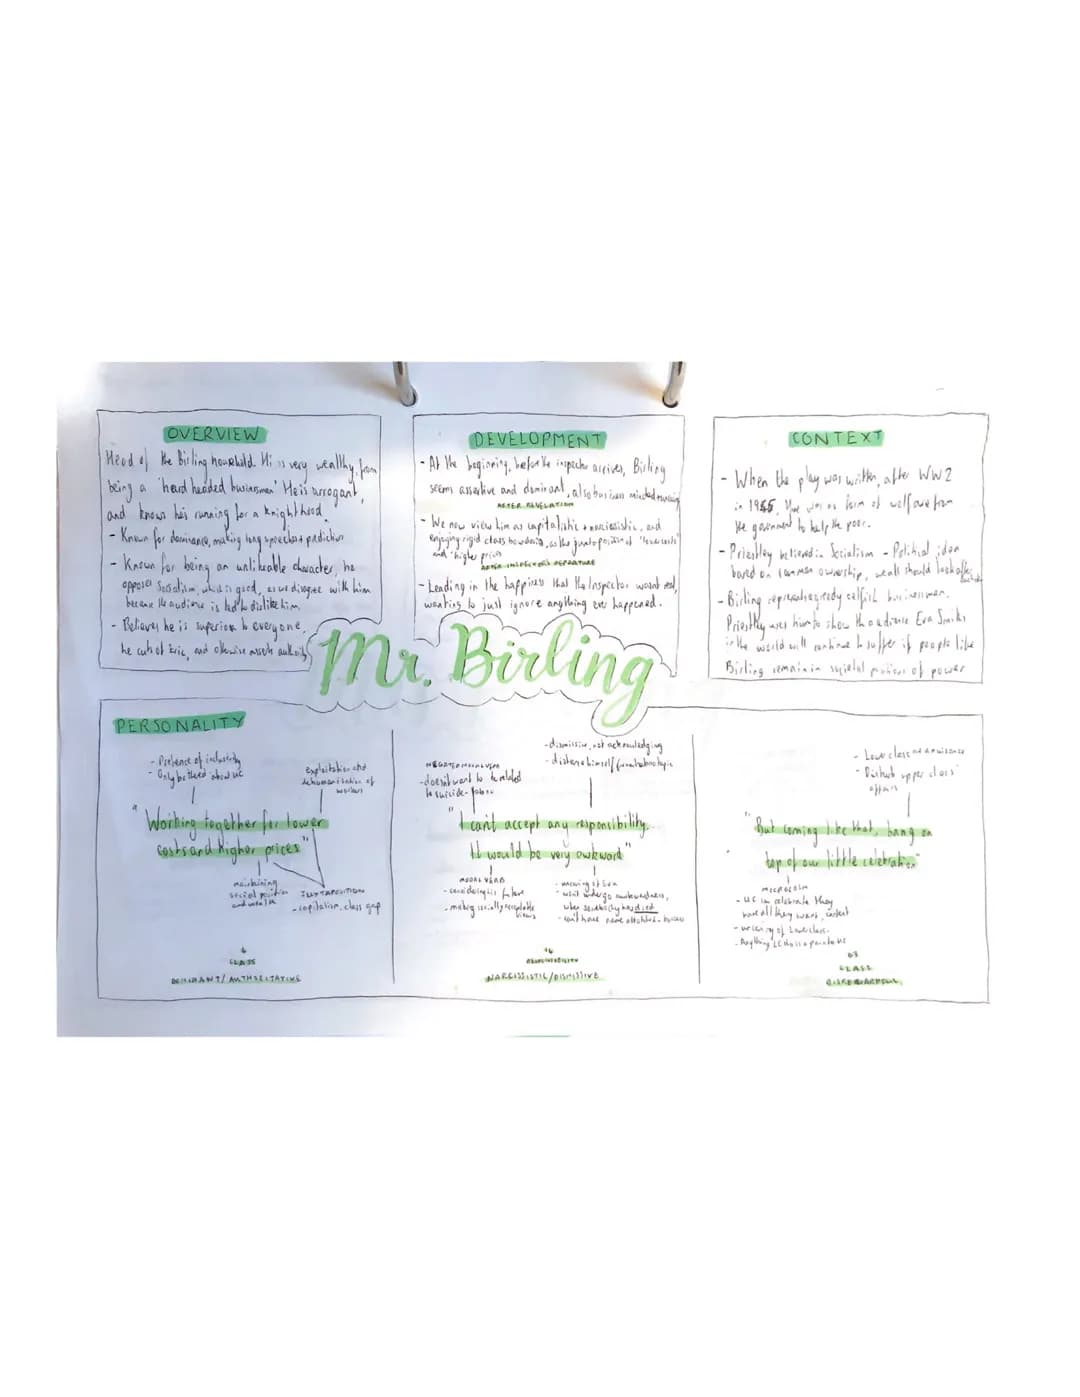 OVERVIEW
Head of the Birling household. He is very wealthy, from
being a 'heard headed businessman' He is arrogant,
and knows he's running for a knighthood.
- Known for dominance, making long speeches + prediction
- Known for being an unlikeable character, he
opposes Socialism, which is good, as we disagree with him
because the audience is led to dislike him.
- Believes he is superior to everyone,
he cuts of Eric, and otherwise asserts authority
DEVELOPMENT
- At the beginning, before the inspector arrives, Birling
seems assertive and dominant, also business minded
AFTER REVELATION
- We now view him as capitalistic + narcissistic, and
enjoying rigid class boundaries, as the juxtaposition of "lower costs"
and "higher prices
AFTER INSPECTORS DEPARTURE
- Leading in the happiness that the Inspector wasnt real,
wanting to just ignore anything ever happened.
CONTEXT
- When the play was written, after WW2
in 1945, there was no form of welfare from
the government to help the poor.
- Priestley believed in Socialism - Political idea
based on common ownership, we all should look after
- Birling represents greedy selfish businessmen.
Priestley uses him to show the audience Eva Smiths
in the world will continue to suffer if people like
Birling remain in societal positions of power
Mr. Birling
PERSONALITY
- Pretence of industry
- Only bothered about UC
exploitation and
dehumanisation of
workers
"Working together for lower
costs and higher prices"
maintaining
social position
and wealth
JUXTAPOSITION
- capitalism, class gap
CLASS
DOMINANT/AUTHORITATIVE
- dismissive, not acknowledging
- distance himself from taboo topic
- doesn't want to be related
to suicide - taboo
"I cant accept any responsibility.
It would be very awkward"
MODAL VERB
- considering his future
- making socially acceptable
views
- meaning of Eva
- won't undergo awkwardness,
when somebody has died
- can't have name attached
RESPONSIBILITY
NARCISSISTIC/DISMISSIVE
- Lower class as a nuisance
- Disturb upper class
affairs
"But coming like that, bang on
top of our little celebration"
MICROCOSM
- UC can celebrate, they
have all they want, content
- of Lower class.
- Anything LC do is a pain to UC
CLASS